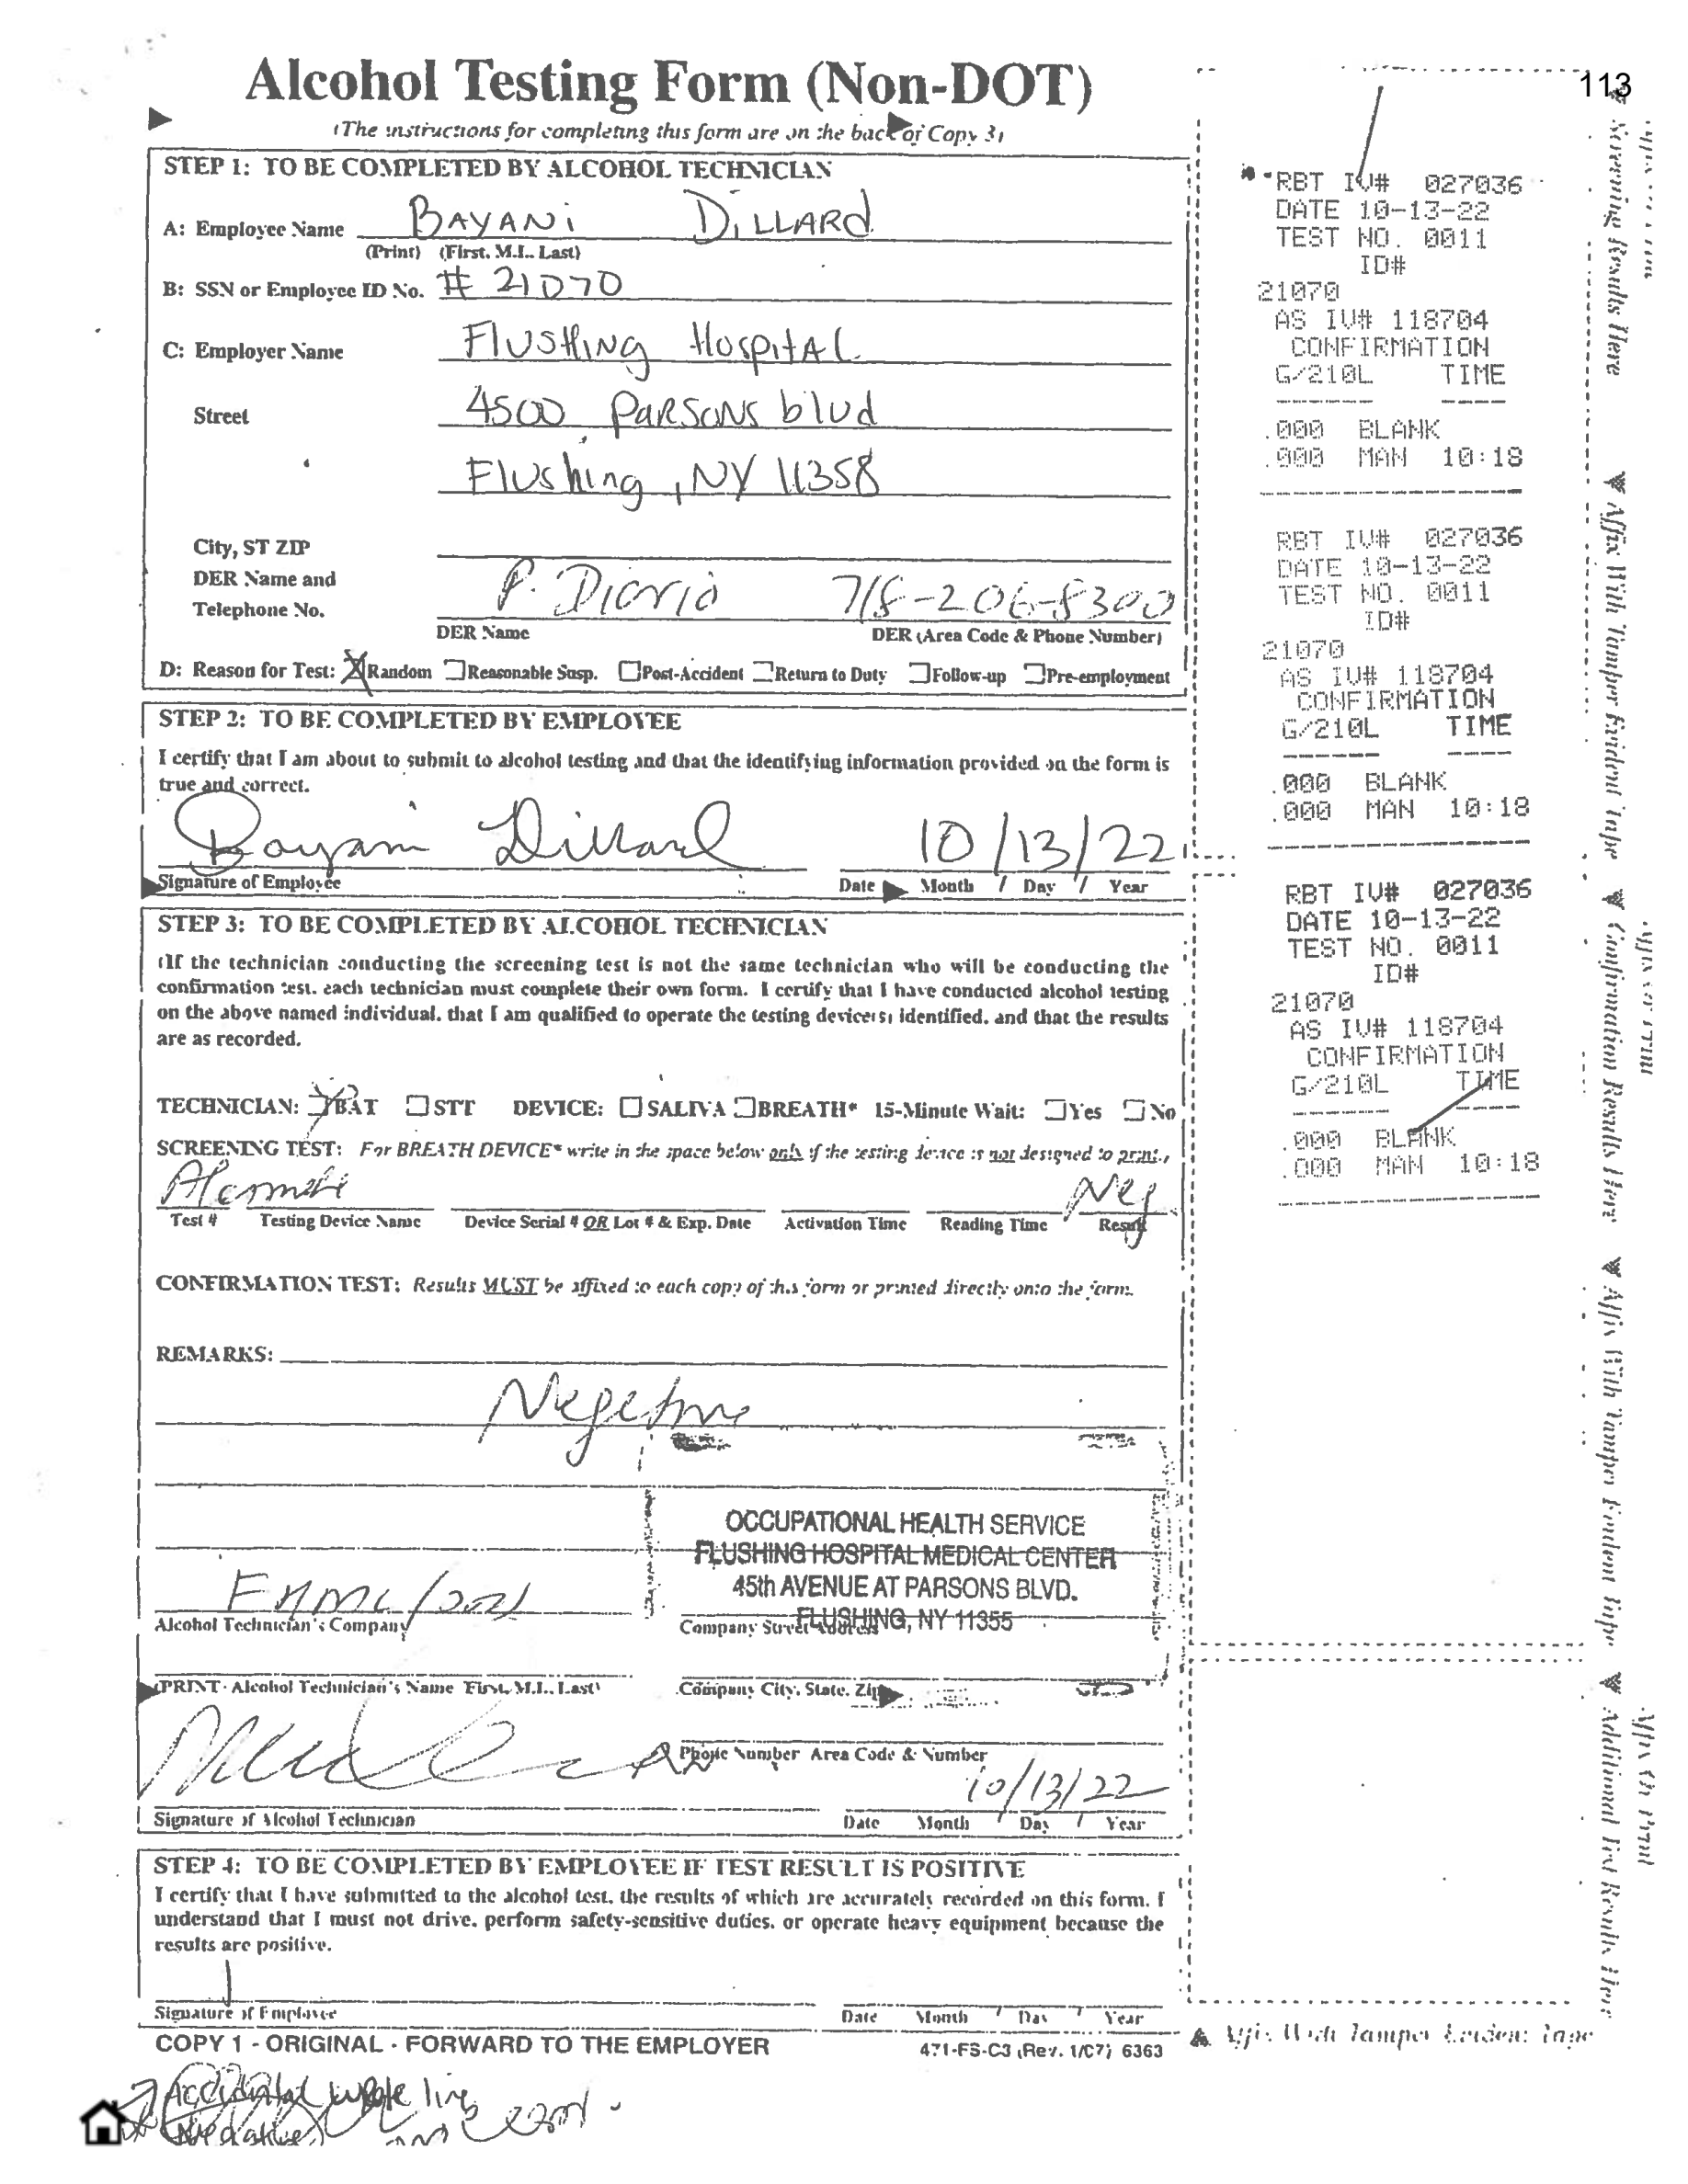 113
Alcohol Testing Form (Non-DOT)
(The instructions for completing this form are on the back of Copy 3)
STEP 1: TO BE COMPLETED BY ALCOHOL TECHNICIAN
A: Employee Name BAYANi DiLLARd
(Print) (First, M.I., Last)
B: SSN or Employee ID No. # 21070
C: Employer Name FlusHiNg HospitAL
Street 4500 PARSONS blvd
Flushing, NY 11358
City, ST ZIP
DER Name and
Telephone No. P. Diorio 718-206-8300
DER Name DER (Area Code & Phone Number)
D: Reason for Test: Random Reasonable Susp. Post-Accident Return to Duty Follow-up Pre-employment
STEP 2: TO BE COMPLETED BY EMPLOYEE
I certify that I am about to submit to alcohol testing and that the identifying information provided on the form is
true and correct.
Bayani Dillard 10/13/22
Signature of Employee Date Month / Day / Year
STEP 3: TO BE COMPLETED BY ALCOHOL TECHNICIAN
(If the technician conducting the screening test is not the same technician who will be conducting the
confirmation test, each technician must complete their own form. I certify that I have conducted alcohol testing
on the above named individual, that I am qualified to operate the testing device(s) identified, and that the results
are as recorded.
TECHNICIAN: BAT STT DEVICE: SALIVA BREATH* 15-Minute Wait: Yes No
SCREENING TEST: For BREATH DEVICE* write in the space below only if the testing device is not designed to print.)
Neg
Test # Testing Device Name Device Serial # OR Lot # & Exp. Date Activation Time Reading Time Result
CONFIRMATION TEST: Results MUST be affixed to each copy of this form or printed directly onto the form.
REMARKS:
Negative
OCCUPATIONAL HEALTH SERVICE
FLUSHING HOSPITAL MEDICAL CENTER
45th AVENUE AT PARSONS BLVD.
FLUSHING, NY 11355
FHMC
Alcohol Technician's Company Company Street Address
(PRINT) Alcohol Technician's Name First, M.I., Last) Company City, State, Zip
Phone Number Area Code & Number
10/13/22
Signature of Alcohol Technician Date Month / Day / Year
STEP 4: TO BE COMPLETED BY EMPLOYEE IF TEST RESULT IS POSITIVE
I certify that I have submitted to the alcohol test, the results of which are accurately recorded on this form. I
understand that I must not drive, perform safety-sensitive duties, or operate heavy equipment because the
results are positive.
Signature of Employee Date Month / Day / Year
COPY 1 - ORIGINAL - FORWARD TO THE EMPLOYER 471-FS-C3 (Rev. 1/07) 6363
Accidental wrote line
RBT IV# 027036
DATE 10-13-22
TEST NO. 0011
ID#
21070
AS IV# 118704
CONFIRMATION
G/210L TIME
.000 BLANK
.000 MAN 10:18
RBT IV# 027036
DATE 10-13-22
TEST NO. 0011
ID#
21070
AS IV# 118704
CONFIRMATION
G/210L TIME
.000 BLANK
.000 MAN 10:18
RBT IV# 027036
DATE 10-13-22
TEST NO. 0011
ID#
21070
AS IV# 118704
CONFIRMATION
G/210L TIME
.000 BLANK
.000 MAN 10:18
Screening Results Here
Affix With Tamper Evident Tape
Confirmation Results Here
Affix With Tamper Evident Tape
Additional Test Results Here
Affix With Tamper Evident Tape